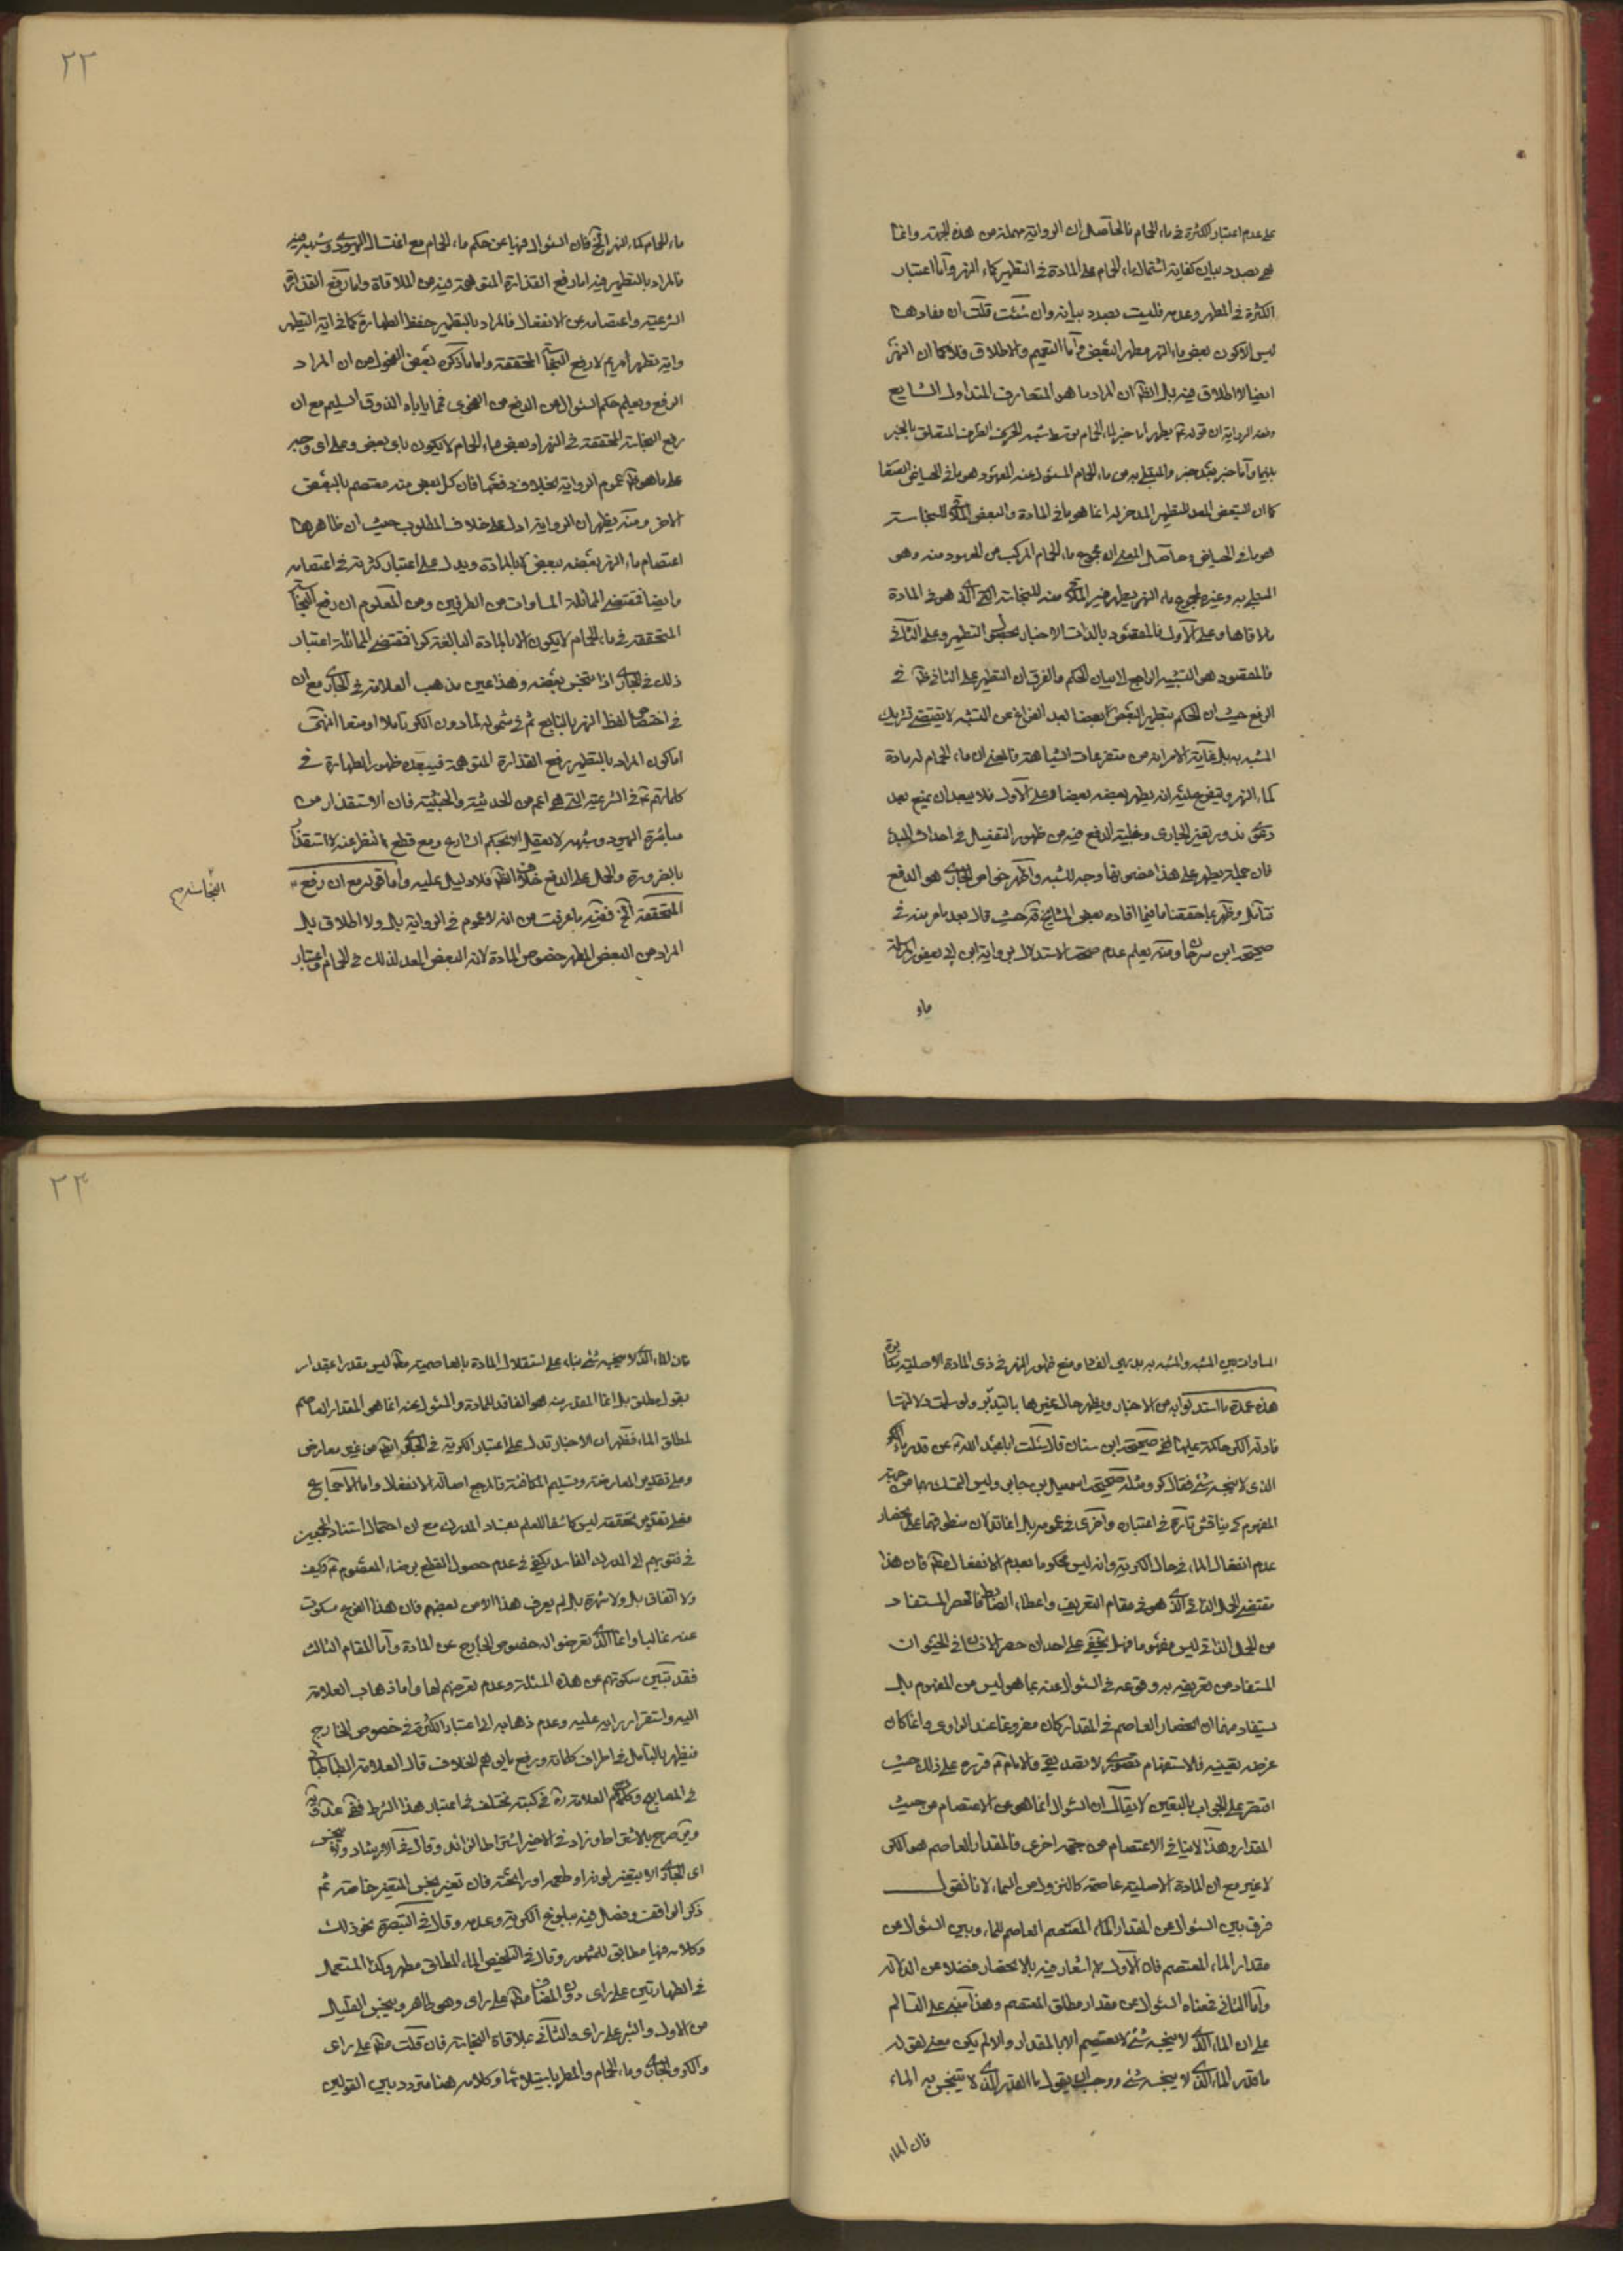 على عدم اعتبار الكثرة في ماء الحمام فالحاصل ان الرواية مهملة من هذه الجهة وانما
هي بصدد بيان كفاية اشتمال ماء الحمام على المادة في التطهير كماء النهر واما اعتبار
الكثرة في المطهر وعدمه فليست بصدد بيانه وان شئت قلت ان مفادها
ليس الا كون بعض ماء النهر مطهر البعض واما التعميم والاطلاق فلا كما ان النهر
ايضا لا اطلاق فيه بل الظ ان المراد ما هو المتعارف المتداول الشايع
هو ما في الحياض وحاصل المعنى ان مجموع ماء الحمام المركب من المعهود منه وهو
المبتلى به وغيره كمجموع ماء النهر يطهر غير
ملاقاها وعلى الاول فالمقصود بالذات الاخبار التطهير وعلى الثاني
فالمقصود هو التشبيه الراجع لا بيان الحكم والفرق ان التطهير على الثاني ظ في
الرفع حيث ان الحكم بتطهير البعض بعضا بعد الفراغ عن التشبيه لا يقتضي تشريك
المشبه به بل غاية الامر انه من متفرعات الشباهة فالمعنى ان ماء الحمام له مادة
كماء النهر ويتفرع عليه انه يطهر بعضه بعضا وعلى الاول فلا يبعد ان يمنع بعد
فتامل وظهر بما حققنا ما فيما افاده بعض المشايخ ره حيث قال بعد ما مر منه في
صحيحة ابن سرحان ومنه يعلم عدم صحة الاستدلال برواية ابن ابي يعفور المرسلة
ماء
٢٢
ماء الحمام كماء النهر الخ فان السئوال فيها عن حكم ماء الحمام مع اغتسال اليهودي وشبهه فيه
فالمراد بالتطهير فيه اما رفع القذارة المتوهمة فيه من الملاقاة واما رفع القذارة
الشرعية واعتصامه عن الانفعال فالمراد بالتطهير حفظ الطهارة كما في اية التطهير
واية تطهير مريم لا رفع النجاسة المحققة واما ما ذكره بعض الفحول من ان المراد
الرفع ويعلم حكم السئوال من الدفع من الفحوى فمما ياباه الذوق السليم مع ان
رفع النجاسة المحققة في النهر او بعض ماء الحمام لا يكون باي بعض وعلى اي وجه
على ما هو ظ عموم الرواية بخلاف دفعها فان كل بعض منه معتصم بالبعض
الاخر ومنه يظهر ان الرواية ادل على خلاف المطلوب حيث ان ظاهرها
اعتصام ماء النهر بعضه ببعض لا بالمادة ويدل على اعتبار كثرته في اعتصامه
وايضا فمقتضى المماثلة المساوات من الطرفين ومن المعلوم ان رفع النجاسة
المتحققة في ماء الحمام لا يكون الا بالمادة البالغة كرا فمقتضى المماثلة اعتبار
ذلك في الجاري اذا تنجس بعضه وهذا عين مذهب العلامة في الجاري مع ان
في اختصاص لفظ النهر بالنابع ثم في شموله لما دون الكر تاملا او منعا انتهى
اما كون المراد بالتطهير رفع القذارة المتوهمة فيبعده ظهور الطهارة في
كلماتهم في الشرعية التي هي اعم من الحدثية والخبثية فان الاستقذار من
مباشرة اليهود وشبهه لا يعقل الا بحكم الشارع ومع قطع النظر عنه لا استقذار
بالضرورة والحمل على الدفع خلاف الظ فلا دليل عليه واما قوله مع ان رفع
النجاسة صح
المتحققة الخ ففيه ما عرفت من انه لا عموم في الرواية بل ولا اطلاق بل
المراد من البعض المطهر خصوص المادة لانه البعض المعد لذلك في الحمام واعتبار
المساوات بين المشبه والمشبه به بديهي الفساد ومنع ظهور النهر في ذي المادة الاصلية مكابرة
هذه عمدة ما استدلوا به من الاخبار ويظهر حال غيرها بالتدبر ولو سلمت دلالتها
فادلة الكر حاكمة عليها ففي صحيحة ابن سنان قال سئلت ابا عبد الله ع عن قدر الماء
الذي لا ينجسه شئ فقال كر ومثله صحيحة اسمعيل بن جابر وليس التمسك بها من جهة
المفهوم كي يناقش تارة في اعتباره واخرى في عمومه بل انما تدلان منطوقهما على انحصار
عدم انفعال الماء في حال الكرية وانه ليس محكوما بعدم الانفعال مط فان هذا
مقتضى الحمل الذاتي الذي هو في مقام التعريف واعطاء الضابط فالحصر المستفاد
من الحمل الذاتي ليس مفهوما فهل يخفى على احد ان حصر الانسان في الحيوان
المستفاد من تعريفه به وقوعه في السئوال عنه بما هو ليس من المفهوم بل
يستفاد منها ان انحصار العاصم في المقدار كان مفروغا عند الراوي وانما كان
غرضه تعيينه فالاستفهام تصوري لا تصديقي والامام ع قرره على ذلك حيث
اقتصر على الجواب بالتعيين لا يقال ان السئوال انما هو عن الاعتصام من حيث
المقدار وهذا لا ينافي الاعتصام من جهة اخرى فالمقدار العاصم هو الكر
لا غير مع ان المادة الاصلية عاصمة كالنزول من السماء لانا نقول
فرق بين السئوال عن المقدار العاصم للماء وبين السئوال عن
مقدار الماء المعتصم فان الاول لا اشعار فيه بالانحصار فضلا عن الدلالة
واما الثاني فمعناه السئوال عن مقدار مطلق المعتصم وهذا مبني على التسالم
على ان الماء الذي لا ينجسه شئ لا يعتصم الا بالمقدار والا لم يكن معنى لقوله
ما قدر الماء الذي لا ينجسه شئ ووجب ان يقول ما القدر الذي لا يتنجس به الماء
فان الماء
٢٣
فان الماء الذي لا ينجسه شئ بناء على استقلال المادة بالعاصمية مط ليس مقدرا بمقدار
بقول مطلق بل انما المقدر منه هو الفاقد للمادة والمسئول عنه انما هو المقدار العاصم
لمطلق الماء فظهر ان الاخبار تدل على اعتبار الكرية في الجاري ايضا من غير معارض
وعلى تقدير المعارضة وتسليم المكافئة فالمرجع اصالة الانفعال واما الاجماع
فعلى تقدير تحققه ليس كاشفا للعلم بفساد المدرك مع ان احتمال استناد المجمعين
في فتويهم الى المدرك الفاسد يكفي في عدم حصول القطع برضاء المعصوم ع كيف
ولا اتفاق بل ولا شهرة بل لم يعرف هذا الا من بعضهم فان هذا الفرع مسكوت
عنه غالبا وانما الذي تعرضوا له خصوص الخارج عن المادة واما المقام الثالث
فقد تبين سكوتهم عن هذه المسئلة وعدم تعرضهم لها واما ذهاب العلامة
اليه واستقرار رايه عليه وعدم ذهابه الى اعتبار الكثرة في خصوص الخارج
فيظهر بالتامل في اطراف كلماته ورفع ما يوهم الخلاف قال العلامة الطباطبائي
في المصابيح وكلام العلامة ره في كتبه مختلف في اعتبار هذا الشرط ففي
صرح بالاشتراط وزاد في الاخير اشتراط الزائد وقال في الارشاد
اي الجاري الا بتغير لونه او طعمه او رائحته فان تغير نجس المتغير خاصة ثم
ذكر الواقف وفصل فيه ببلوغ الكرية وعدمه وقال في التبصرة نحو ذلك
وكلامه فيها مطابق للمشهور وقال في التلخيص الماء المطلق مطهر وكذا المستعمل
في الطهارتين على راي دون المضاف مط على راي وهو طاهر وينجس القليل
من الاول والبئر على راي والثاني بملاقاة النجاسة فان قلت مط على راي
والكر والجاري وماء الحمام والمطر باستيلائها وكلامه هنا متردد بين القولين